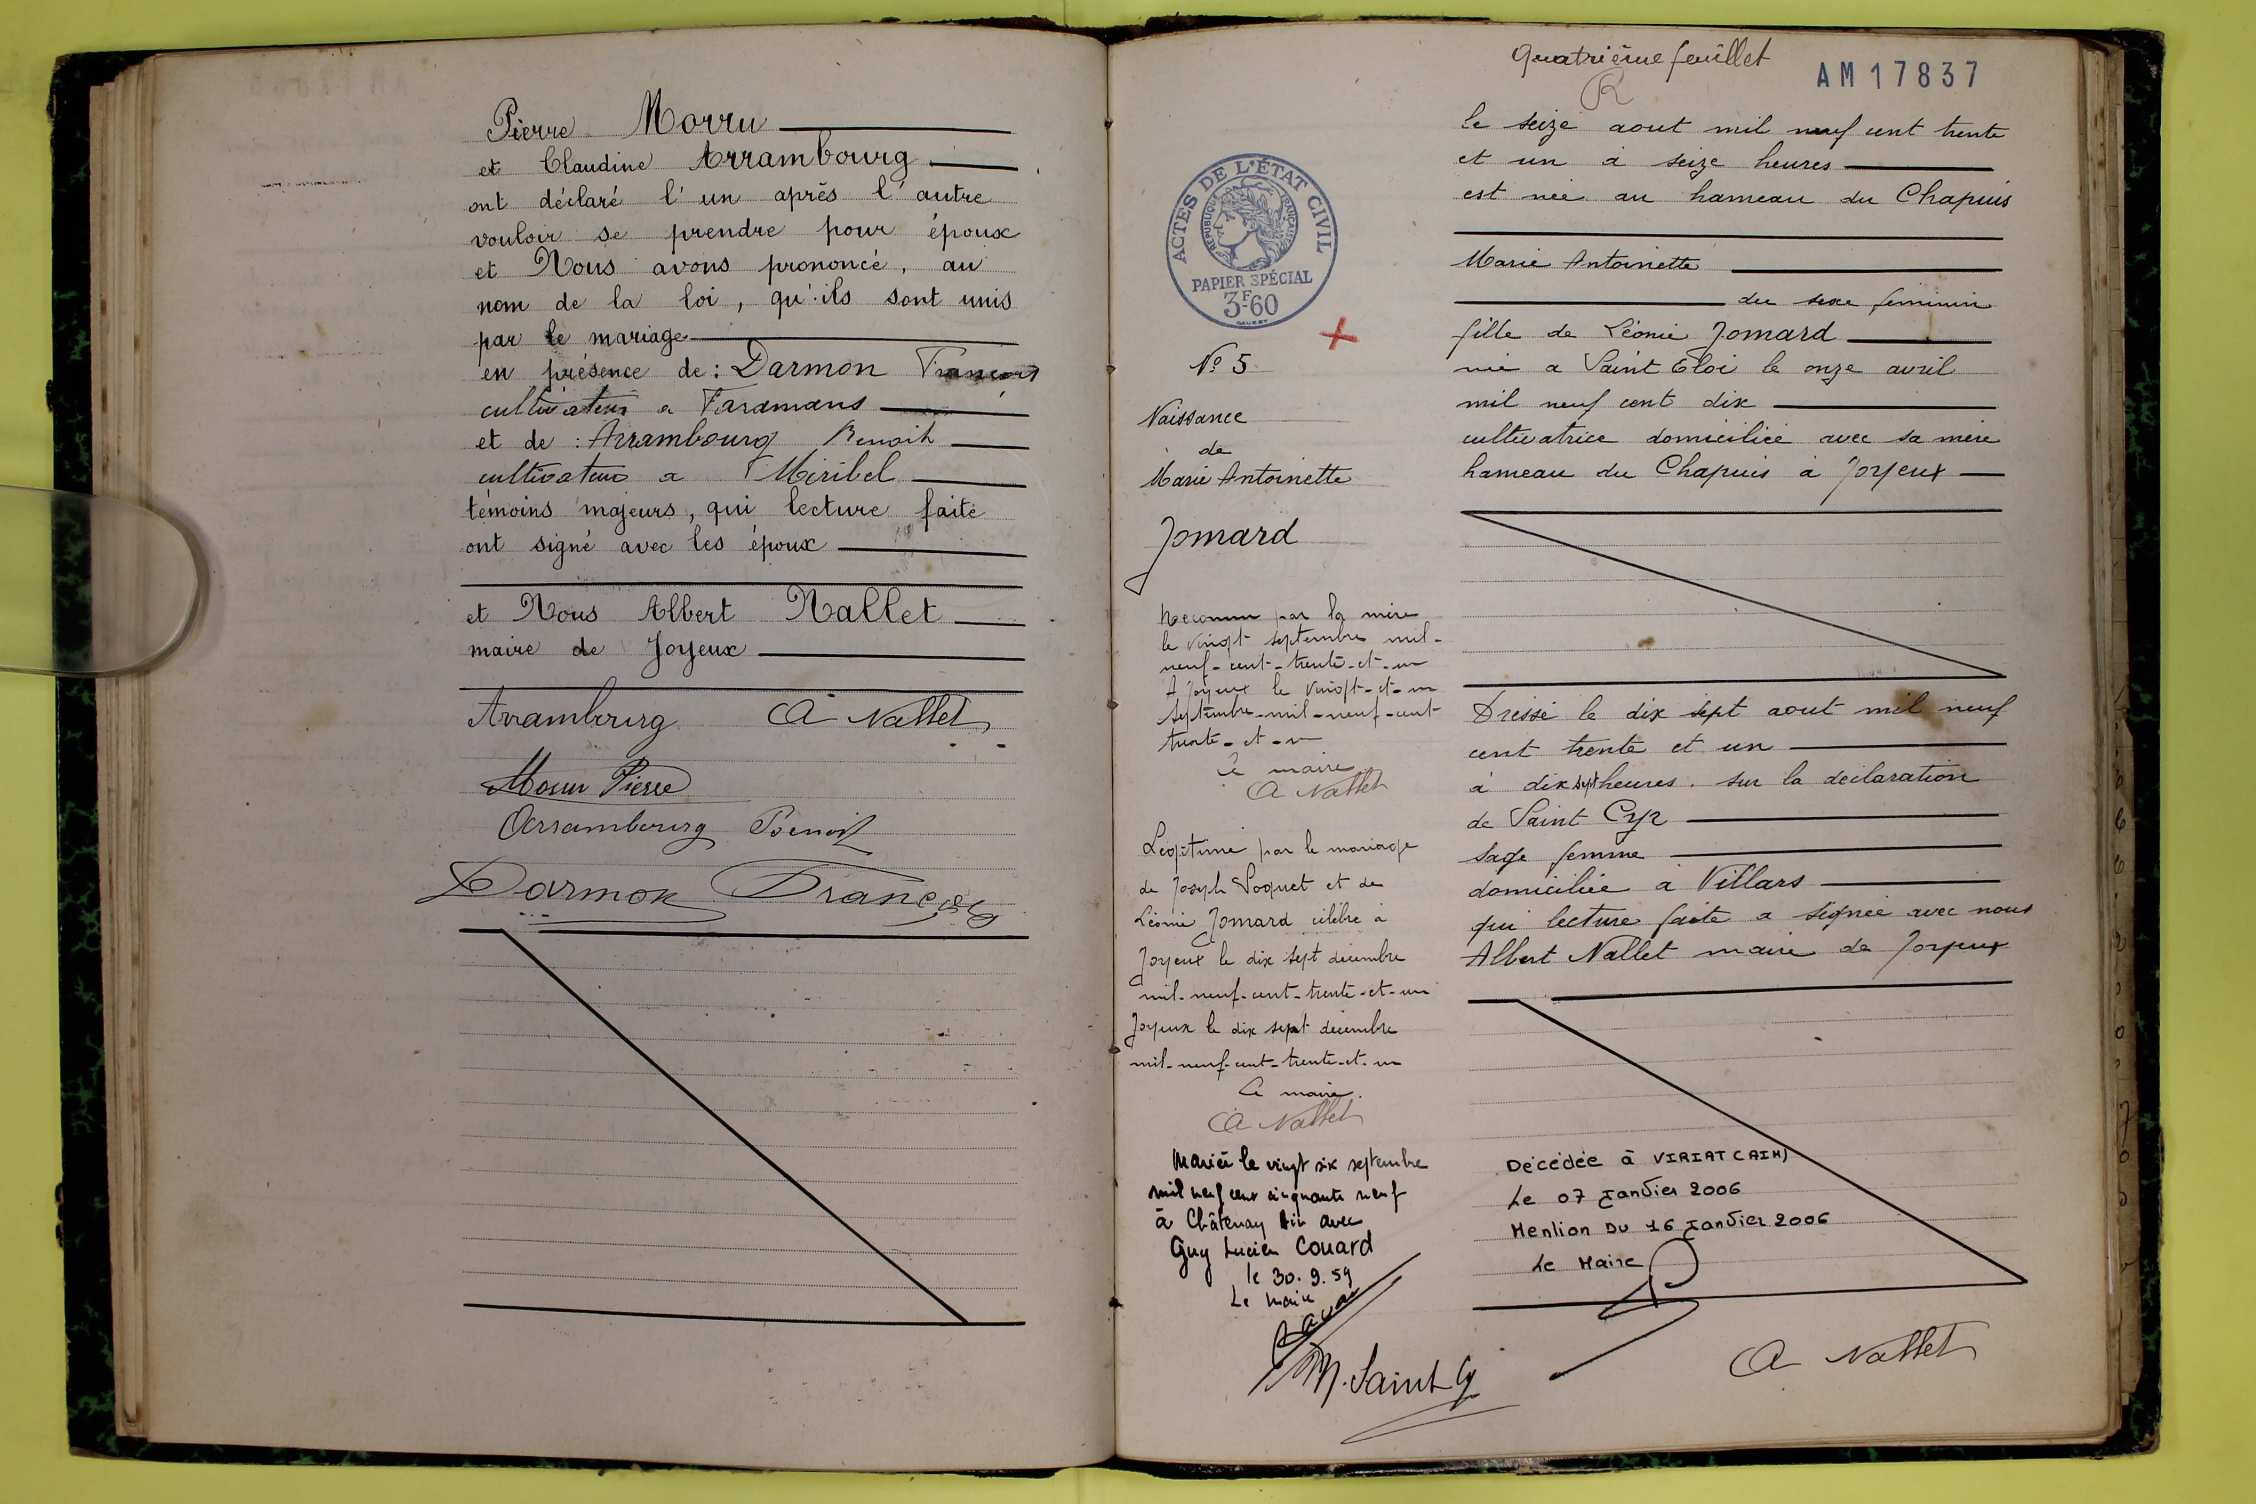 Pierre Morru
et Claudine Arrambourg
ont déclaré l'un après l'autre
vouloir se prendre pour époux
et Nous avons prononcé, au
nom de la loi, qu'ils sont unis
par le mariage
en présence de : Darmon François
cultivateur a Faramans
et de : Arrambourg Benoit
cultivateur a Miribel
témoins majeurs, qui lecture faite
ont signé avec les époux
et Nous Albert Nallet
maire de Joyeux
Arrambourg A Nallet
Pierre
Arrambourg Benoit
Darmon François
Quatrième feuillet
AM17837
le seize aout mil neuf cent trente
et un à seize heures
est née au hameau du Chapuis
Marie Antoinette
du sexe féminin
fille de Léonie Jomard
née a Saint Eloi le onze avril
mil neuf cent dix
cultivatrice domiciliée avec sa mère
hameau du Chapuis à Joyeux
Dressé le dix sept aout mil neuf
cent trente et un
à dix sept heures. sur la déclaration
de Saint Cyr
sage femme
domiciliée a Villars
qui lecture faite a signée avec nous
Albert Nallet maire de Joyeux
Décédée à VIRIAT (AIN)
Le 07 Janvier 2006
Mention DU 16 Janvier 2006
Le Maire
A Nallet
ACTES DE L'ÉTAT CIVIL
RÉPUBLIQUE FRANÇAISE
PAPIER SPÉCIAL
3F60
No 5
Naissance
de
Marie Antoinette
Jomard
Reconnu par la mère
le vingt septembre mil-
neuf-cent-trente-et-un
A Joyeux le vingt-et-un
septembre-mil-neuf-cent
trente-et-un
Le maire
A Nallet
Légitimé par le mariage
de Joseph Poquet et de
Léonie Jomard célébré à
Joyeux le dix sept décembre
mil-neuf-cent-trente-et-un
Joyeux le dix sept décembre
mil-neuf-cent-trente-et-un
Le maire.
A Nallet
Mariée le vingt six septembre
mil neuf cent cinquante neuf
à Châtenay Ain avec
Guy Lucien Couard
le 30.9.59
Le Maire
M. Saint Cyr